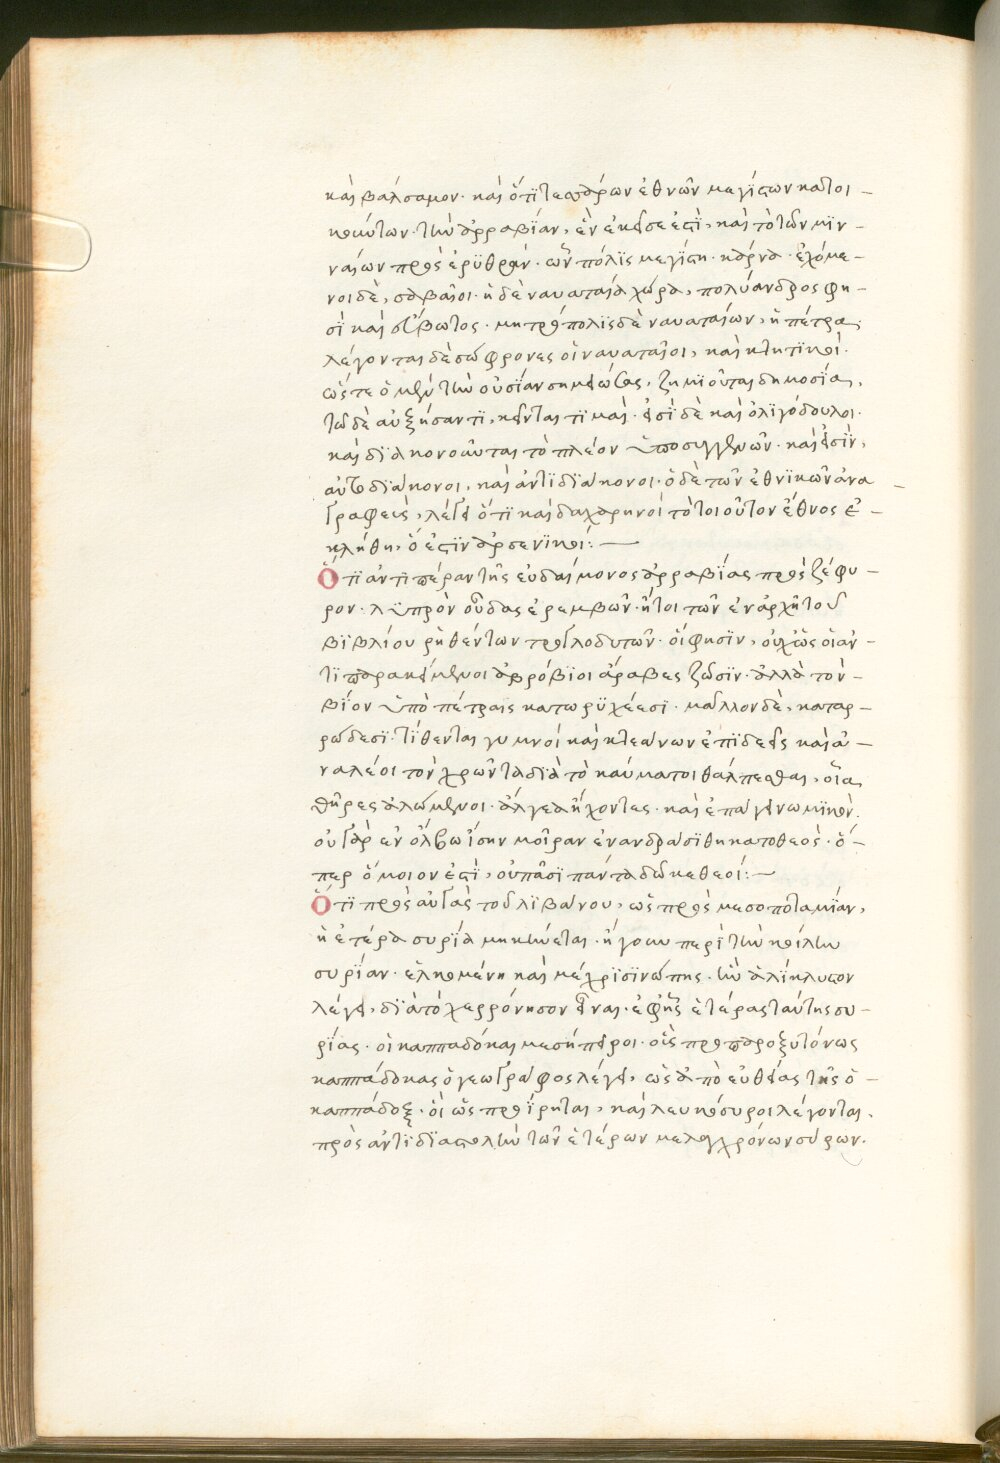 καὶ βάλσαμον· καὶ ὅτι τεσσάρων ἐθνῶν μεγίστων κατοι-
κούντων· τὴν ἀρραβίαν, ἓν ἐκεῖσε ἐστὶ, καὶ τὸ τῶν μιν-
ναίων πρὸς ἐρυθρᾷ· ὧν πόλις μεγίστη· κάρνα· ἐχόμε-
νοι δὲ, σαβαῖοι· ἡ δὲ ναυαταία χώρα, πολύανδρος φη-
σὶ καὶ εὔβοτος· μητρόπολις δὲ ναυαταίων, ἡ πέτρα,
λέγονται δὲ σώφρονες οἱ ναυαταῖοι, καὶ κτητικοί·
ὥστε ὁ μὲν τὴν οὐσίαν σημειώσας, ζημιοῦται δημοσίᾳ,
τῶ δὲ αὐξήσαντι, κεῖνται τιμαὶ· εἰσὶ δὲ καὶ ὀλιγόδουλοι·
καὶ διακονοῦνται τὸ πλέον ὑπὸ συγγενῶν· καὶ εἰσὶν,
αὐτοδιάκονοι, καὶ ἀντιδιάκονοι· ὁ δὲ τῶν ἐθνικῶν ἀνα-
γραφεὺς, λέγει ὅτι καὶ δαχαρηνοί τὸ τοιοῦτον ἔθνος ἐ-
κλήθη, ὅ ἐστιν ἀρσενικοί:—
Ὅτι ἀντιπέραν τῆς εὐδαίμονος ἀρραβίας πρὸς ζέφυ-
ρον· λυπρὸν οὖδας ἐρεμβῶν· ἤτοι τῶν ἐν ἀρχῇ τοῦ
βιβλίου ῥηθέντων τρωγλοδυτῶν· οἵ φησὶν, οὐχ ὡς οἱ ἀν-
τιπαρακείμενοι ἁβρόβιοι ἄραβες ζῶσιν· ἀλλὰ τὸν
βίον ὑπὸ πέτραις κατωρυχέεσι· μᾶλλον δὲ, καταρ-
ρώδεσι· τίθενται γυμνοί καὶ κτεάνων ἐπιδεεῖς καὶ ἀ-
ναλέοι τὸν χρῶντα διὰ τὸ καύματοι θάλπεσθαι, οἷα
θῆρες ἀλώμενοι· ἄλγεα ἔχοντες· καὶ ἐπάγει γνωμικὸν·
οὐ γὰρ ἐν ὄλβω ἴσην μοῖραν ἐν ἀνδράσι θήκατο θεὸς· ὅ-
περ ὅμοιον ἐστὶ, οὐ πᾶσι πάντα δῶκε θεοί:—
Ὅτι πρὸς αὐγὰς τοῦ λιβάνου, ὡς πρὸς μεσοποταμίαν,
ἡ ἑτέρα συρία μηκύνεται· ἤγουν περὶ τὴν κοίλην
συρίαν· ἑλκομένη καὶ μέχρι σινώπης· ἣν ἁλίκλυστον
λέγει, διὰ τὸ χερρόνησον εἶναι· ἐφ᾽ ἧς ἑτέρας ταύτης συ-
ρίας· οἱ καππαδόκαι μεσήπειροι· οὓς προπαροξυτόνως
καππάδοκας ὁ γεωγράφος λέγει, ὡς ἀπὸ εὐθείας τῆς ὁ-
καππάδοξ· οἱ ὡς προείρηται, καὶ λευκόσυροι λέγονται,
πρὸς ἀντιδιαστολὴν τῶν ἑτέρων μελαγχρόνων σύρων·